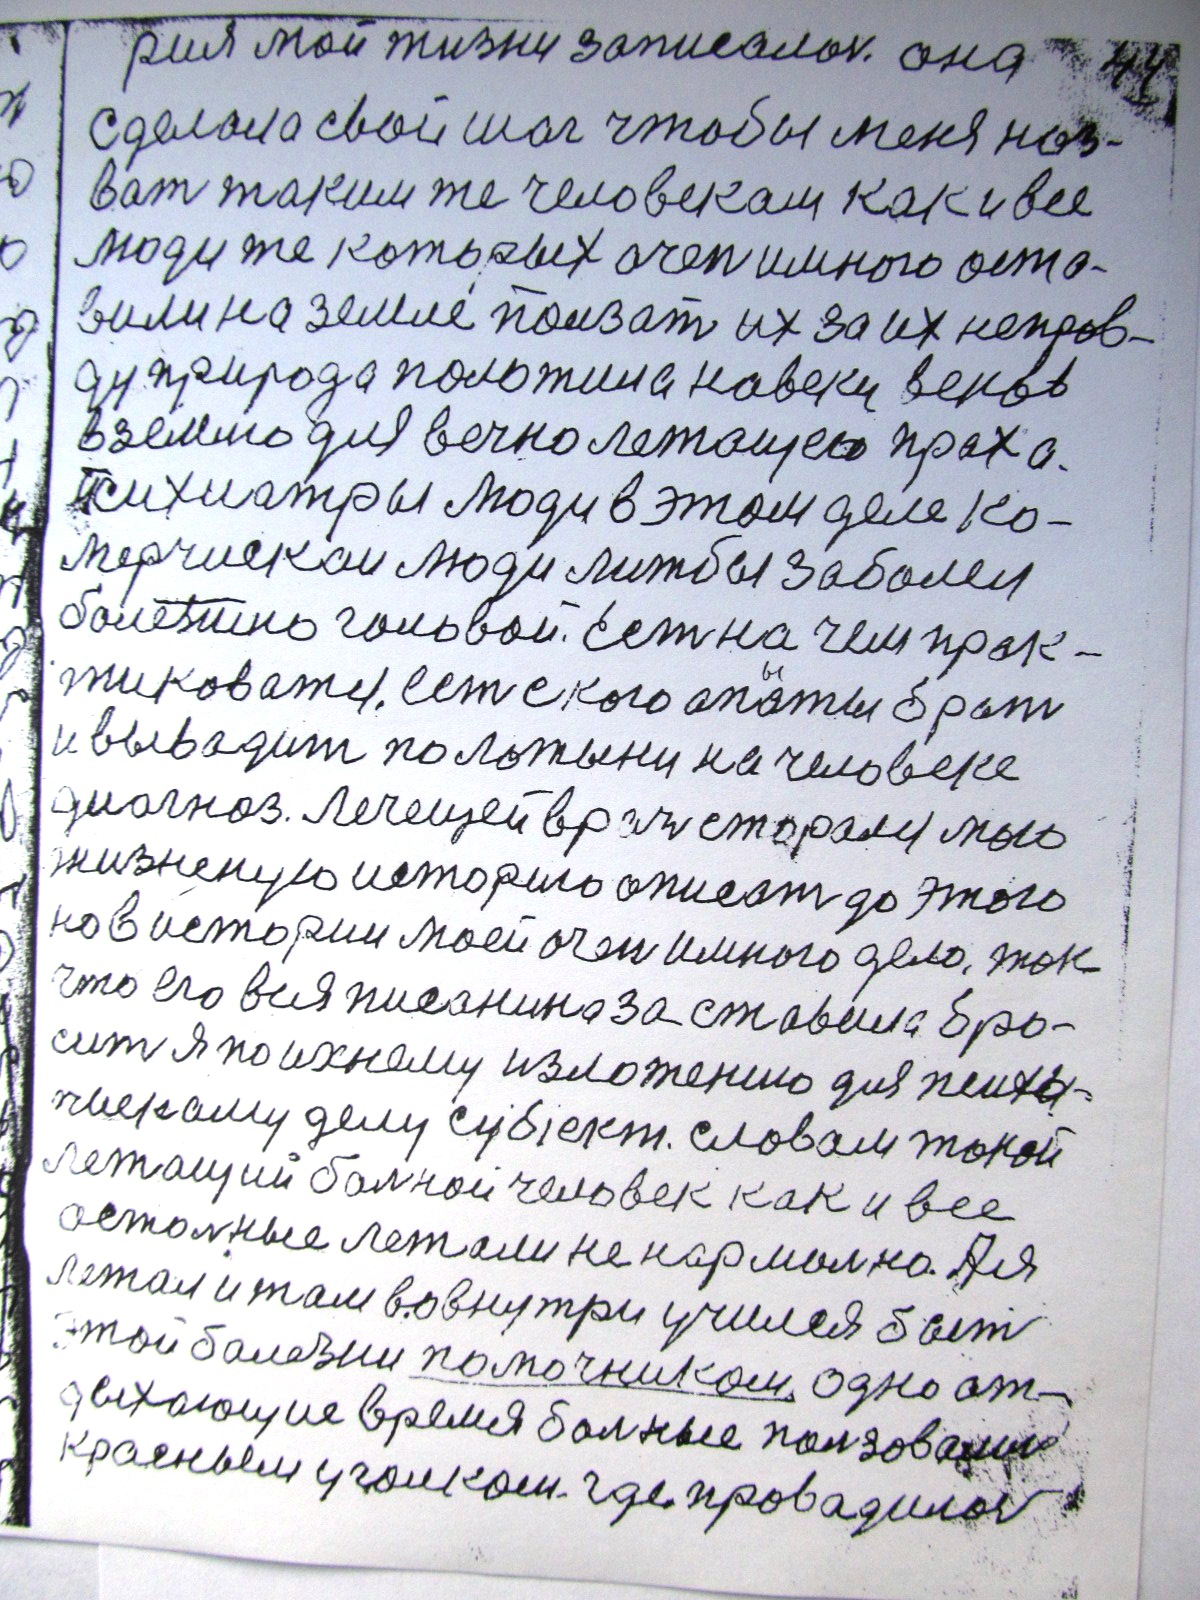 рия мой жизни записалос. она 44
сделала свой шаг чтобы меня наз-
ват таким же человекам как и все
люди же которых очен имного оста-
вили на земле ползат их за их неправ-
ду природа положила навеки веков
вземлю для вечно летащего праха.
Психиатры люди в этом деле ко-
мерчискаи люди лижбы заболел
болезтию головой. Ест на чем прак-
тиковатя, ест с кого апыты брат
и вывадит палажыни на человеке
диагноз. Лечещей врач старался мою
жизненую историю описат до этого
но в истории моей очен имного дела, так-
что его вся писанина заставила бро-
сит я по ихнему изложению для психи-
ческаму делу субіект. словам такой
летащий болной человек как и все
осталные летали не нармално. А я
летал и там вовнутри учился быт
этой балезни памочником. Одно от-
дыхающие время болные ползовалис
красным уголком. где провадилос